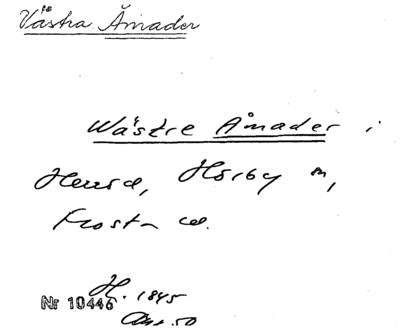 Västra Åmader
Wästre Åmader i
Heurd, Hörby sn,
Frosta
H. 1845
Nr 10446